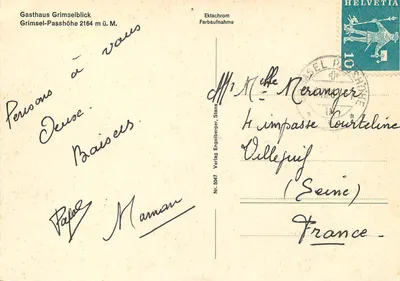 Gasthaus Grimselblick
Grimsel-Passhöhe 2164 m ü. M.
Ektachrom
Farbaufnahme
HELVETIA
10
Pensons à vous
Deux.
Baisers
Papa
Maman
Nr. 5047 Verlag Engelberger, Stans
Melle Meranger
4 impasse Courteline
Villejuif
(Seine)
France